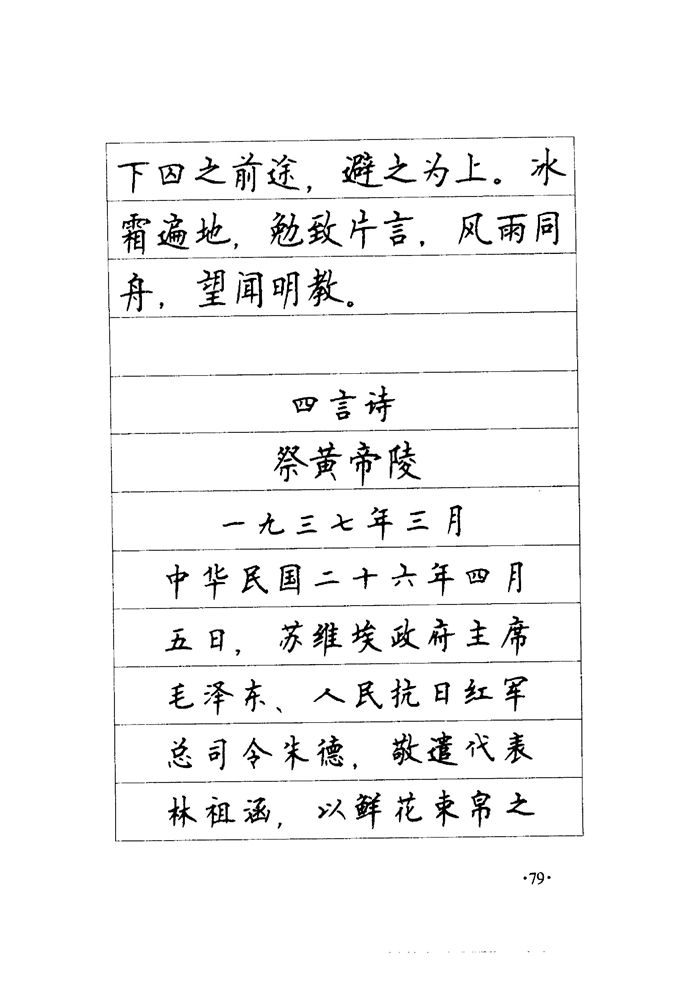 下囚之前途，避之为上。冰
霜遍地，勉致片言，风雨同
舟，望闻明教。
四言诗
祭黄帝陵
一九三七年三月
中华民国二十六年四月
五日，苏维埃政府主席
毛泽东、人民抗日红军
总司令朱德，敬遣代表
林祖涵，以鲜花束帛之
·79·